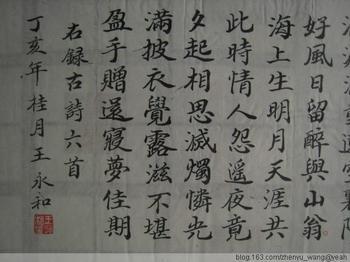 波瀾動遠空襄陽
好風日留醉與山翁
海上生明月天涯共
此時情人怨遙夜竟
夕起相思滅燭憐光
滿披衣覺露滋不堪
盈手贈還寢夢佳期
右錄古詩六首
丁亥年桂月王永和
blog.163.com/zhenyu_wang@yeah